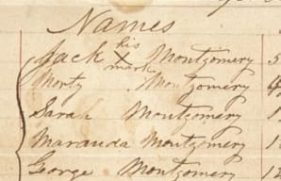 Names
Jack his X mark Montgomery 5
Morty Montgomery 4
Sarah Montgomery 1
Maranda Montgomery 1
George Montgomery 12